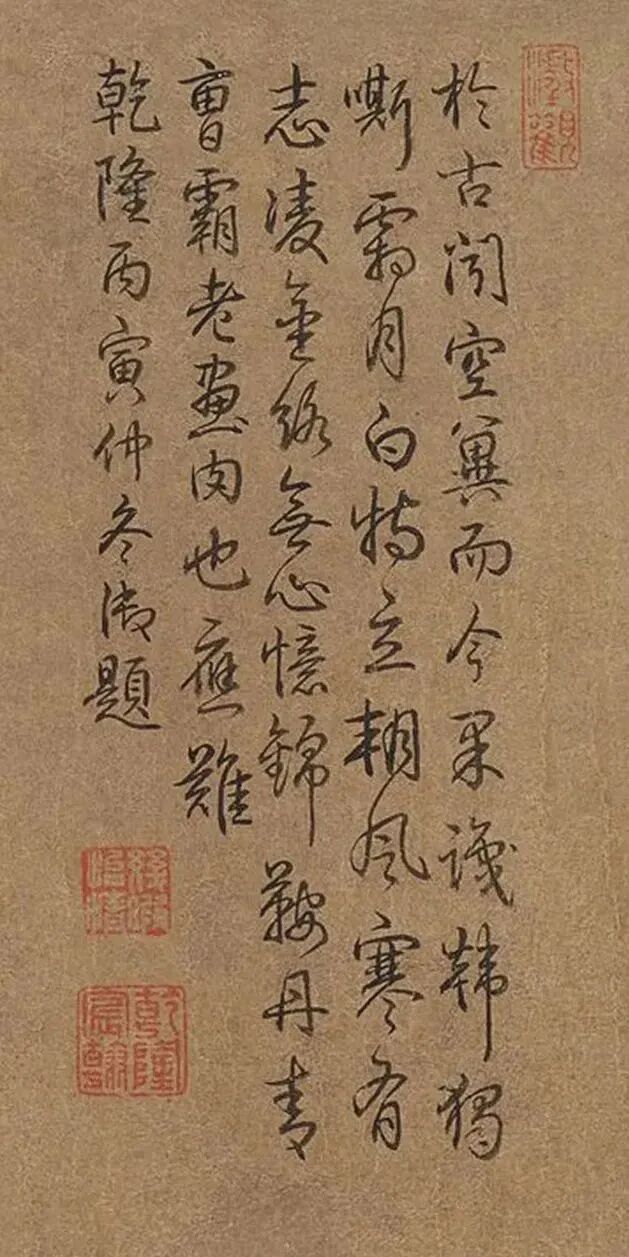 於古聞空冀而今果識韓獨
嘶霜月白特立朔風寒有
志凌金絡無心憶錦鞍丹青
曹霸老畫肉也應難
乾隆丙寅仲冬御題
乾隆宸翰